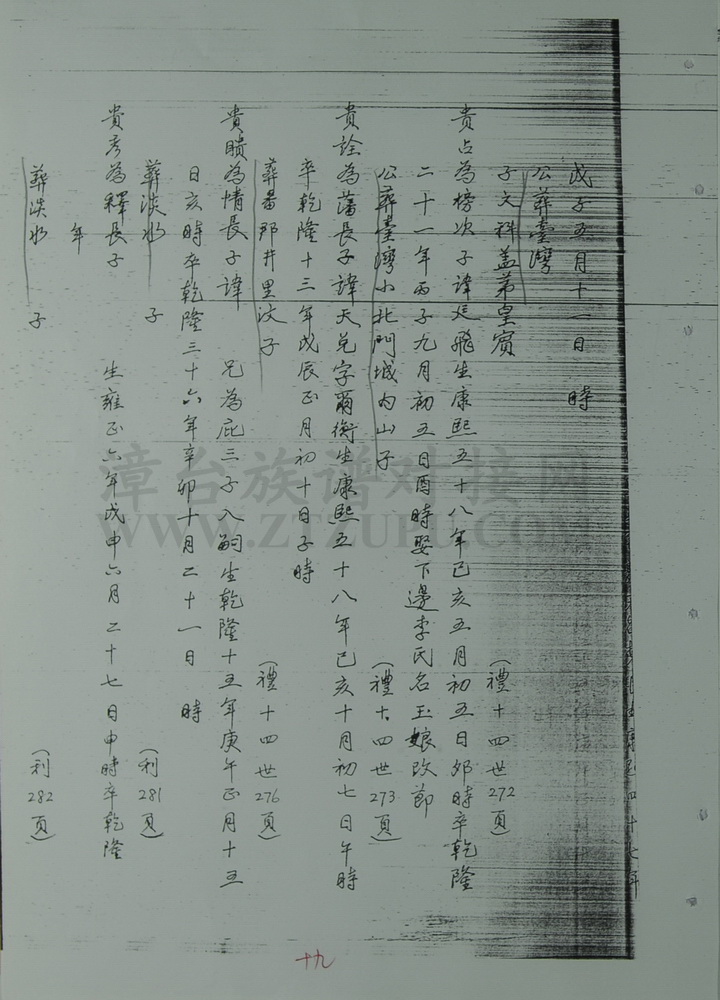 戊子五月十一日　時
公葬臺灣
子文科盖弟皇賓　（禮十四世272頁）
貴占為榜次子諱廷飛生康熙五十八年己亥五月初五日卯時卒乾隆
二十一年丙子九月初五日酉時娶下邊李氏名玉娘改節
公葬臺灣小北門城內山子　（禮十四世273頁）
貴詮為藩長子諱天兌字爾衡生康熙五十八年己亥十月初七日午時
卒乾隆十三年戊辰正月初十日子時
葬番那井里汶子　（禮十四世276頁）
貴瞶為情長子諱　兄為庇三子入嗣生乾隆十五年庚午正月十五
日亥時卒乾隆三十六年辛卯十月二十一日　時
葬淡水　子　（利281頁）
貴彥為釋長子　生雍正六年戊申六月二十七日申時卒乾隆
年
葬淡水　子　（利282頁）
十九
漳台族谱对接网
WWW.ZTZUPU.COM